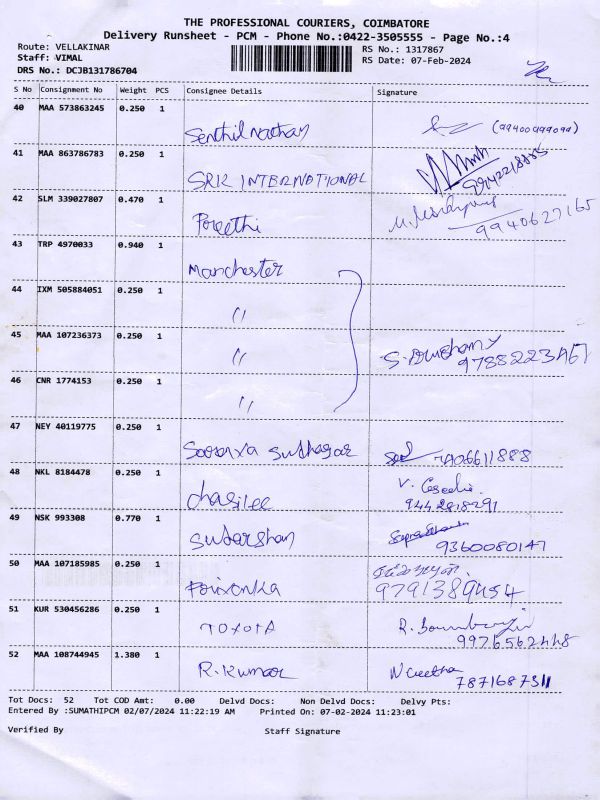 THE PROFESSIONAL COURIERS, COIMBATORE
Delivery Runsheet - PCM - Phone No.:0422-3505555 - Page No.:4
Route: VELLAKINAR
RS No.: 1317867
Staff: VIMAL
RS Date: 07-Feb-2024
DRS No.: DCJB131786704
S No Consignment No Weight PCS Consignee Details Signature
40 MAA 573863245 0.250 1
Senthilnathan
41 MAA 863786783 0.250 1
SRK INTERNATIONAL
42 SLM 339027807 0.470 1
Preethi 9940627165
43 TRP 4970033 0.940 1
Manchester
44 IXM 505884051 0.250 1
"
45 MAA 107236373 0.250 1
"
46 CNR 1774153 0.250 1
"
47 NEY 40119775 0.250 1
Saranya Suthagar
48 NKL 8184478 0.250 1
chasilee
49 NSK 993308 0.770 1
Sutarshan 9360080147
50 MAA 107185985 0.250 1
Priyanka 9791389454
51 KUR 530456286 0.250 1
TOYOTA 9976562448
52 MAA 108744945 1.380 1
R. Kumar 7871687311
Tot Docs: 52 Tot COD Amt: 0.00 Delvd Docs: Non Delvd Docs: Delvy Pts:
Entered By :SUMATHIPCM 02/07/2024 11:22:19 AM Printed On: 07-02-2024 11:23:01
Verified By Staff Signature